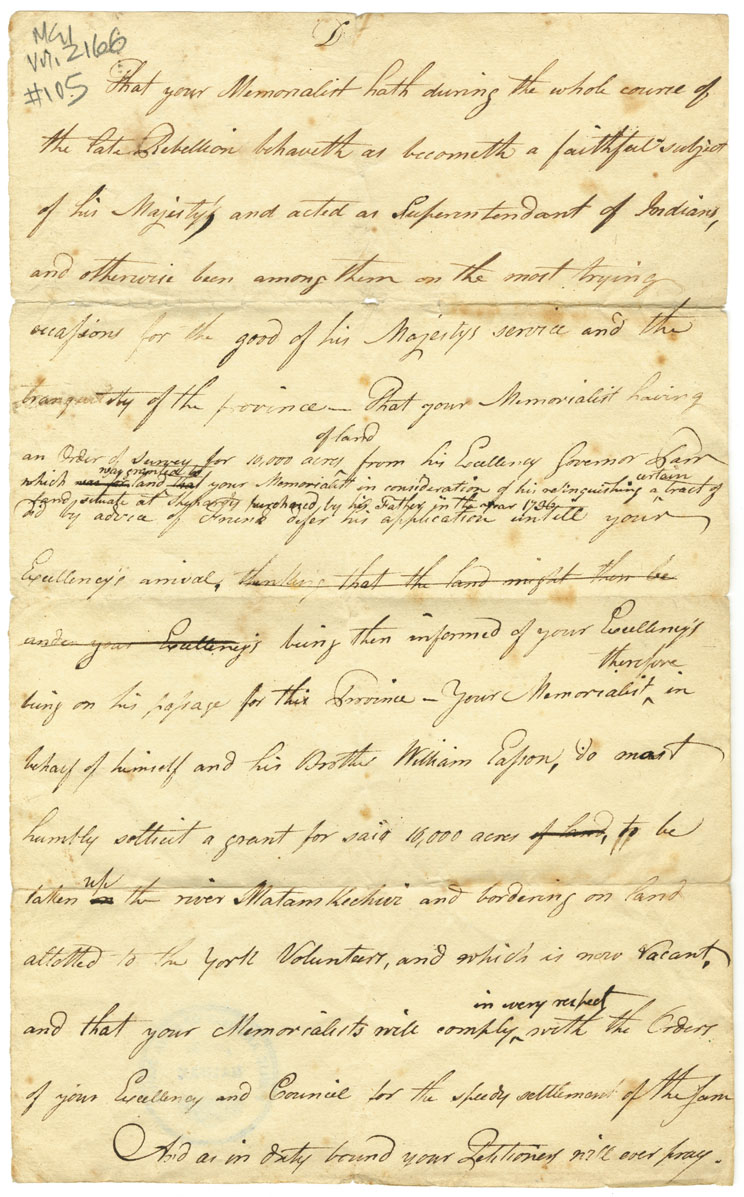 MG1
Vol. 2166
#105
D
That your Memorialist hath during the whole course of
the late Rebellion behaveth as becometh a faithful subject
of his Majesty's and acted as Superintendant of Indians,
and otherwise been among them on the most trying
occasions for the good of his Majestys service and the
tranquility of the province — That your Memorialist having
of land
an Order of Survey for 10,000 acres from his Excellency Governor Parr
was granted to certain
which was for and that your Memorialist in consideration of his relinquishing a tract of
Land, situate at purchased by his Father in the year 1736
did by advice of Friends defer his application untill your
Excellency's arrival, thinking that the land might then be
under your Excellency's being then informed of your Excellency's
therefore
being on his passage for this Province — Your Memorialist ^ in
behalf of himself and his Brother William Easson, do most
humbly sollicit a grant for said 10,000 acres of land, to be
up
taken in the river Matamkechiwi and bordering on land
allotted to the York Volunteers, and which is now Vacant,
in every respect
and that your Memorialists will comply ^ with the Orders
of your Excellency and Council for the speedy settlement of the Sam
And as in duty bound your Petitioners will ever pray.